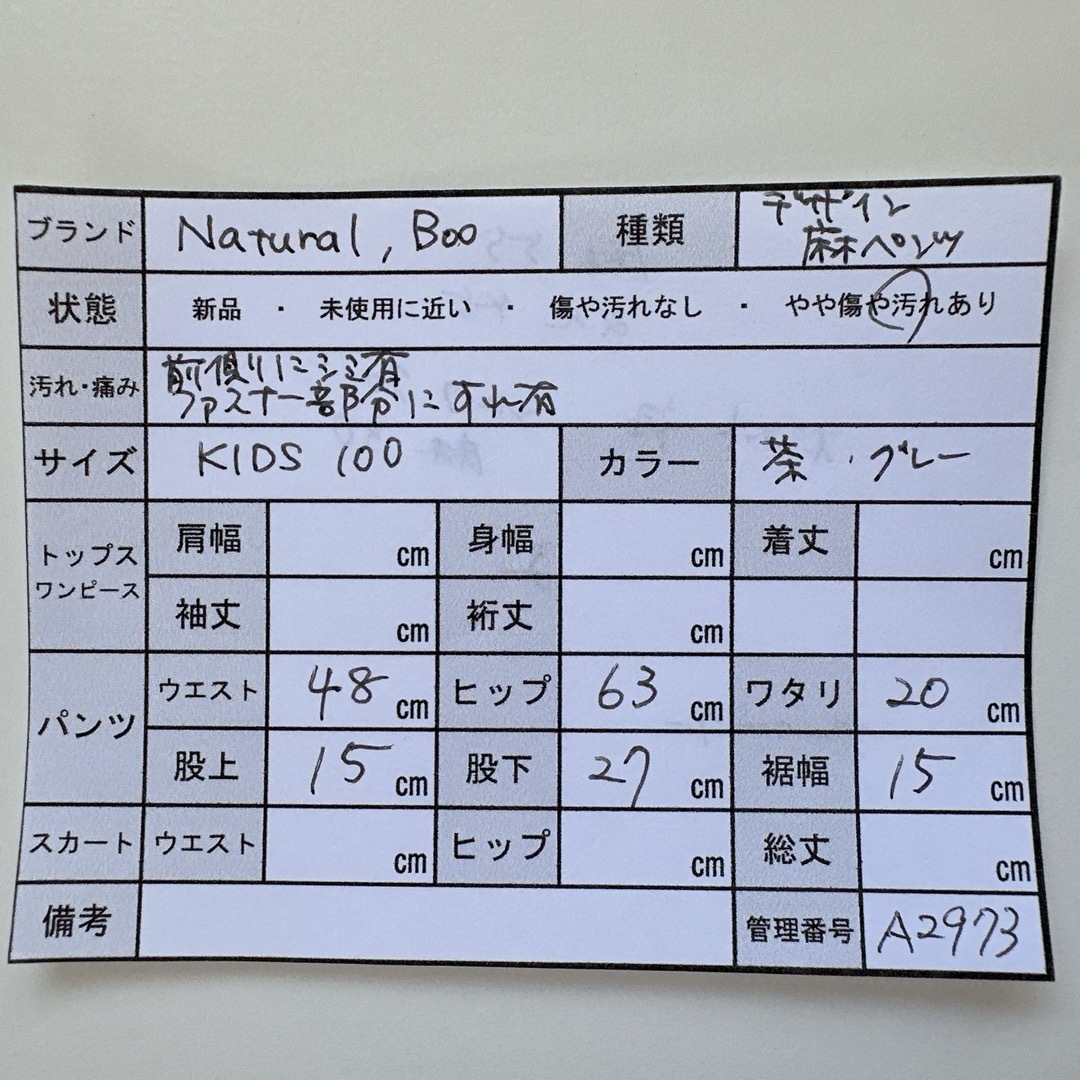 ブランド Natural, Boo 種類 デザイン
麻パンツ
状態 新品 ・ 未使用に近い ・ 傷や汚れなし ・ やや傷や汚れあり
汚れ・痛み 前側りにシミ有
ファスナー部分にすれ有
サイズ KIDS 100 カラー 茶・グレー
トップス
ワンピース
肩幅 cm 身幅 cm 着丈 cm
袖丈 cm 裄丈 cm
パンツ
ウエスト 48 cm ヒップ 63 cm ワタリ 20 cm
股上 15 cm 股下 27 cm 裾幅 15 cm
スカート ウエスト cm ヒップ cm 総丈 cm
備考 管理番号 A2973